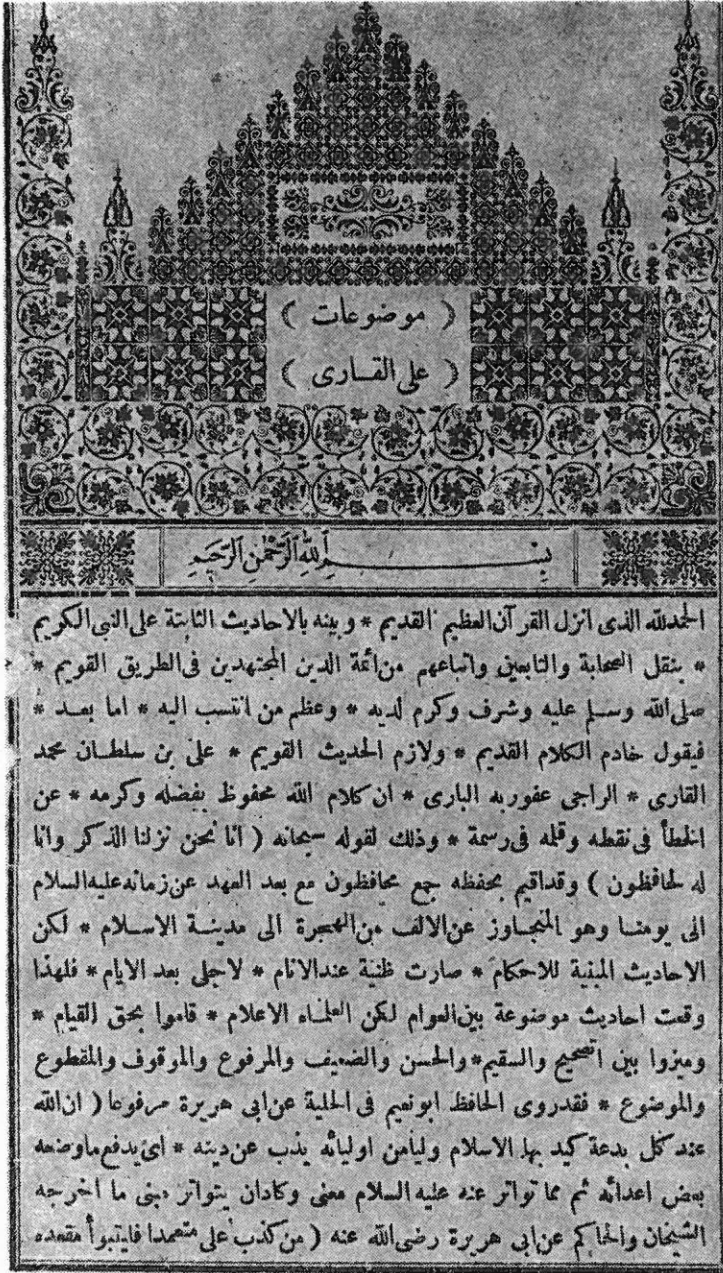 ( موضوعات )
( على القارى )
بسم الله الرحمن الرحيم
الحمدلله الذى انزل القرآن العظيم القديم * وبينه بالاحاديث الثابتة على النبى الكريم
* بنقل الصحابة والتابعين واتباعهم من ائمة الدين المجتهدين فى الطريق القويم *
صلى الله وسلم عليه وشرف وكرم لديه * وعظم من انتسب اليه * اما بعد *
فيقول خادم الكلام القديم * ولازم الحديث القويم * على بن سلطان محمد
القارى * الراجى عفوربه البارى * ان كلام الله محفوظ بفضله وكرمه * عن
الخطأ فى نقطه وقلمه فى رسمة * وذلك لقوله سبحانه ( انا نحن نزلنا الذكر وانا
له لحافظون ) وقداقيم بحفظه جمع محافظون مع بعد العهد عن زمانه عليه السلام
الى يومنا وهو المتجاوز عن الالف من الهجرة الى مدينة الاسلام * لكن
الاحاديث المبنية للاحكام * صارت ظنية عند الانام * لاجلى بعد الايام * فلهذا
وقعت احاديث موضوعة بين العوام لكن العلماء الاعلام * قاموا بحق القيام *
وميزوا بين الصحيح والسقيم* والحسن والضعيف والمرفوع والموقوف والمقطوع
والموضوع * فقدروى الحافظ ابونعيم فى الحلية عن ابى هريرة مرفوعا ( ان الله
عند كل بدعة كيد بها الاسلام وليامن اوليائه يذب عن دينه * اى يدفع ماوضعه
بعض اعدائه ثم مما تواتر عنه عليه السلام معنى وكادان يتواتر مبنى ما اخرجه
الشيخان والحاكم عن ابى هريرة رضى الله عنه ( من كذب على متعمدا فليتبوأ مقعده